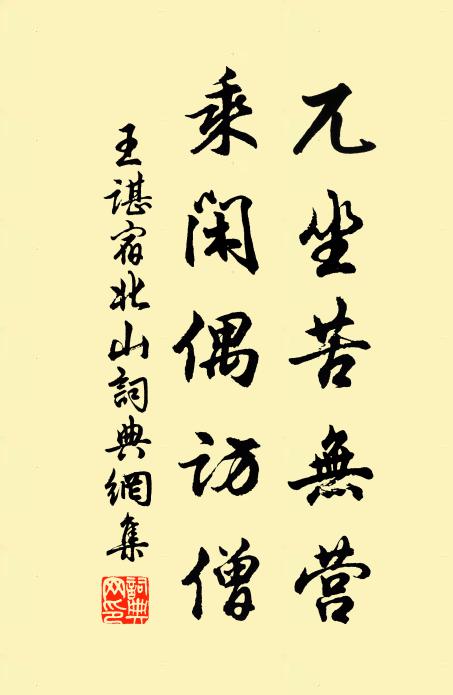 兀坐苦無营
乘闲偶访僧
王諶宿北山詞典網集
詞典網印